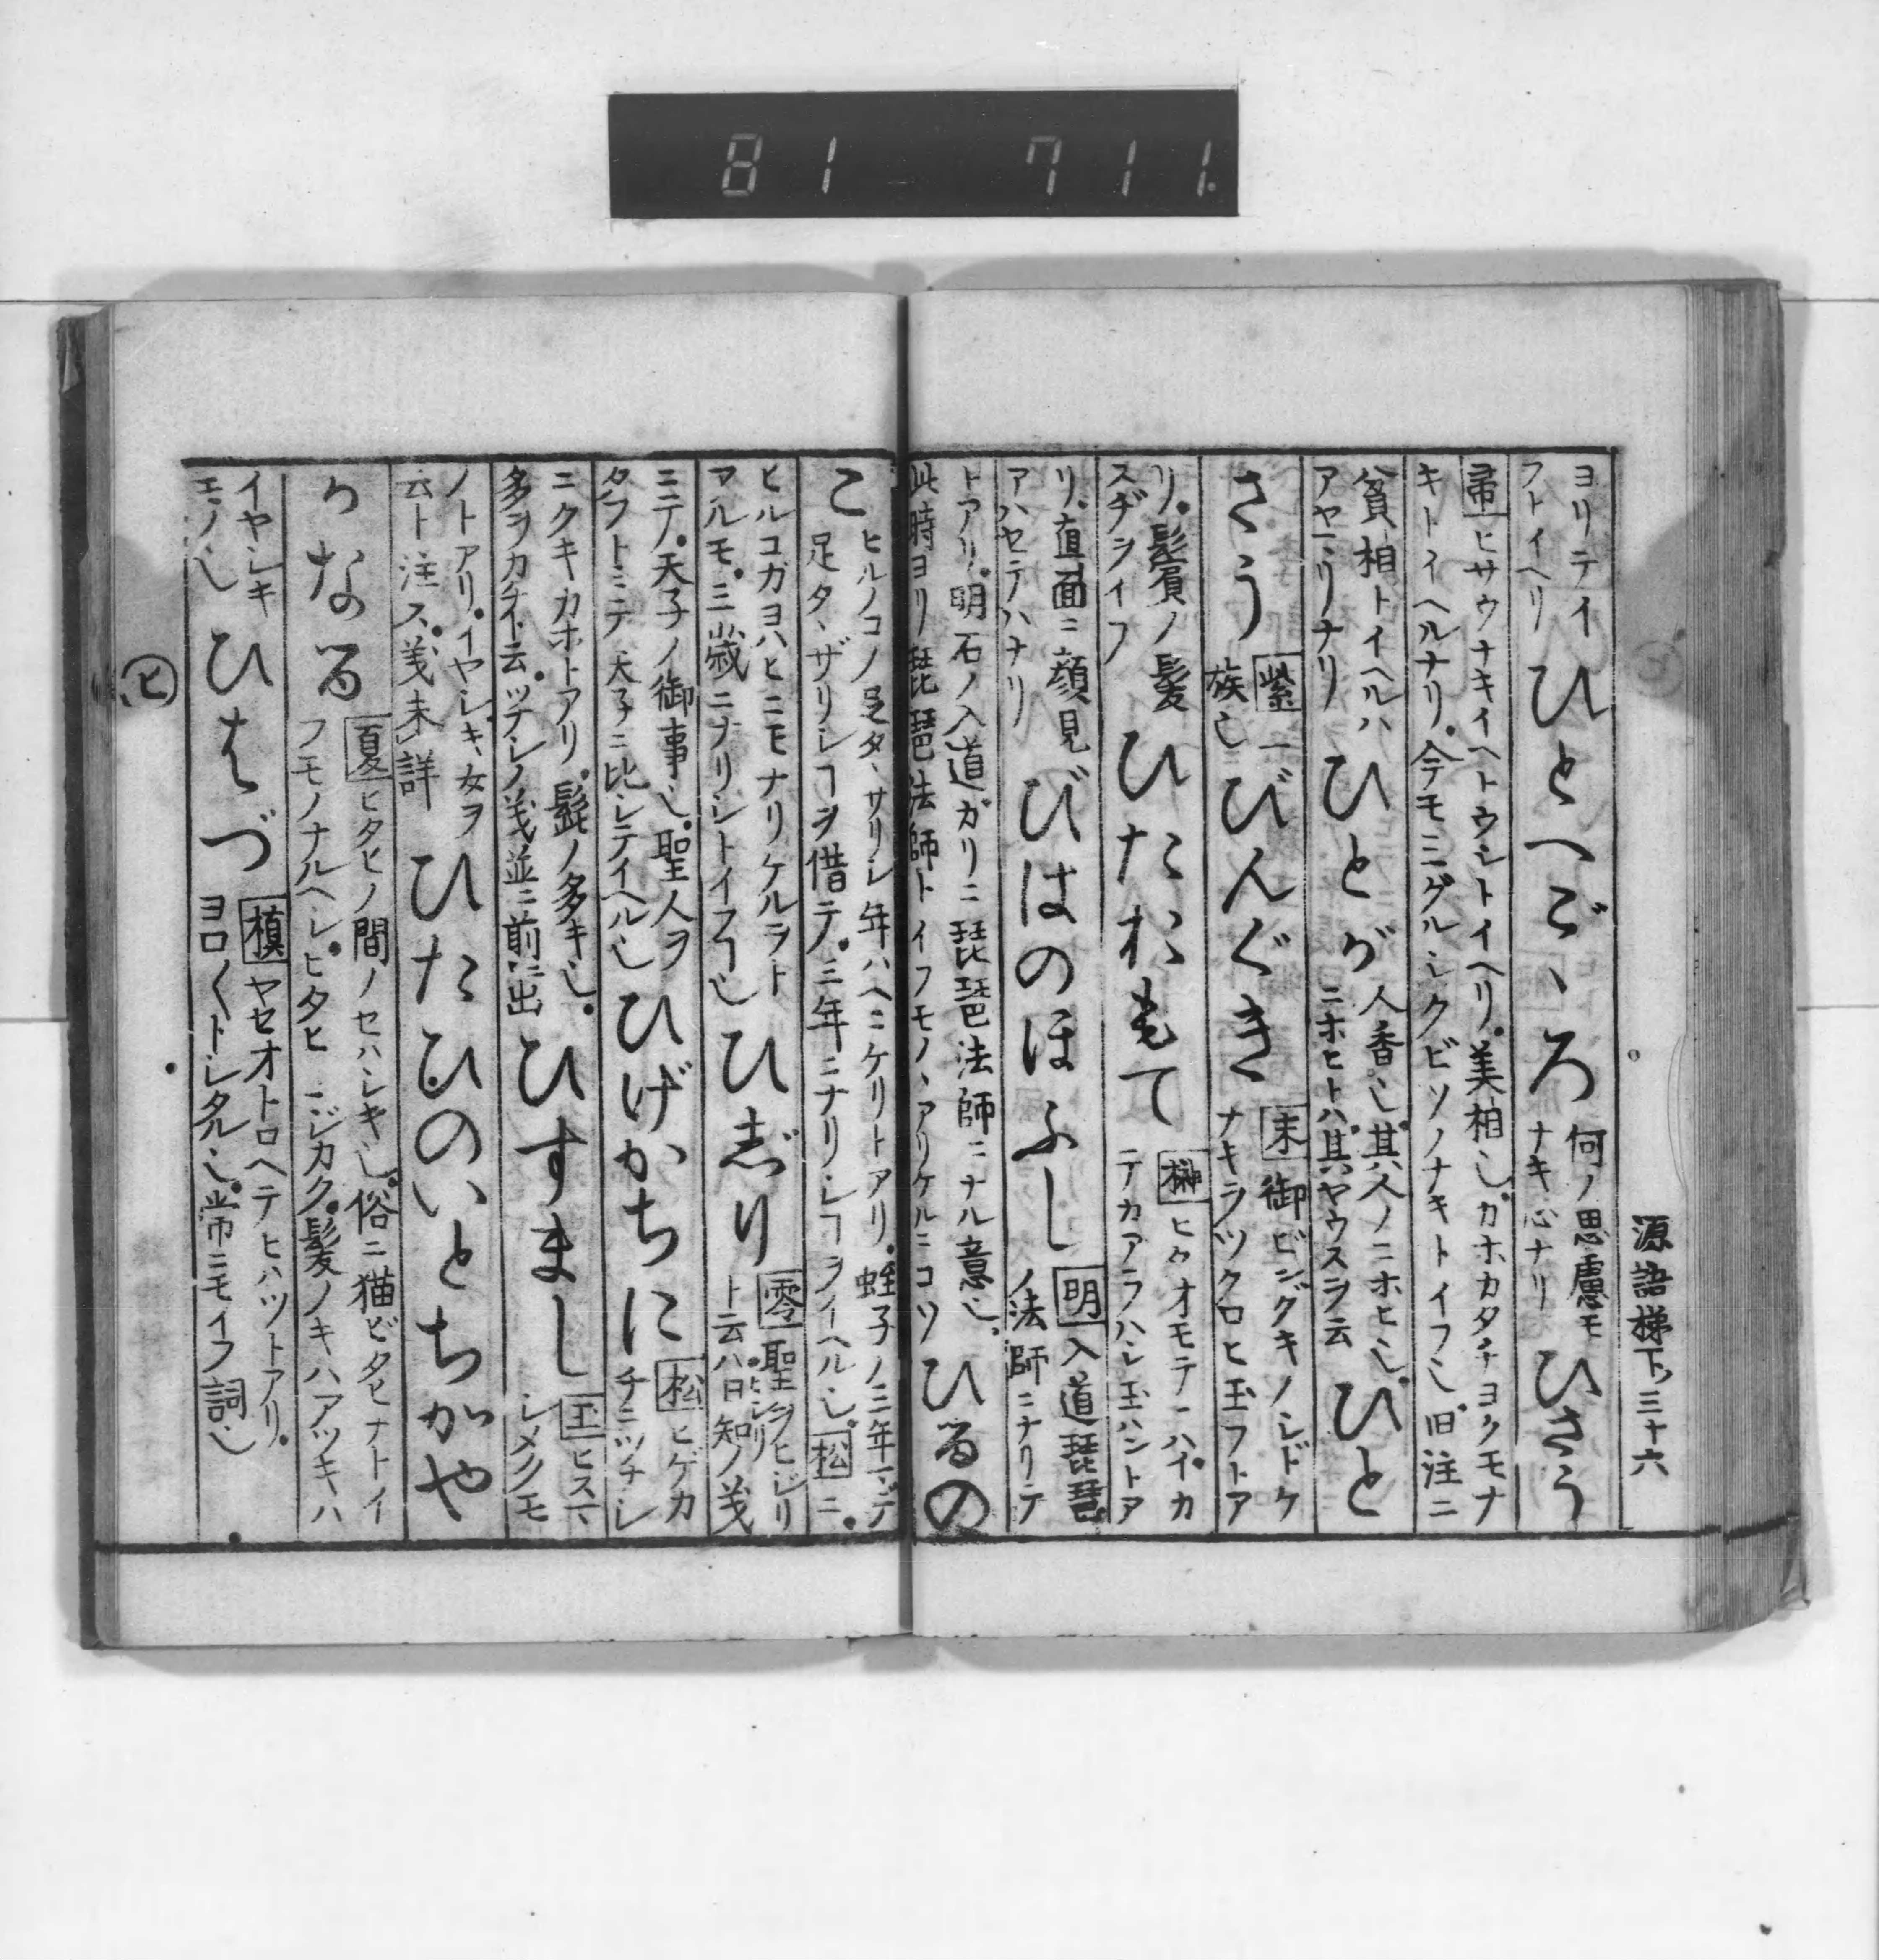 81 711.
源語梯下 三十六
ヨリテイ
フトイヘリ
ひとへごゝろ
何ノ思慮モ
ナキ心ナリ
ひさう
帚ヒサウナキイヘトウシトイヘリ。美相也。カホカタチヨクモナ
キトイヘルナリ。今モミグルシクビソノナキトイフ也。旧注ニ
貧相トイヘルハ
アヤマリナリ
ひとが
人香也。其人ノニホヒ也。
ニホヒトハ。其ヤウスヲ云
ひと
さう
紫一
族也
びんぐき
末御ビングキノシドケ
ナキヲツクロヒ玉フトア
リ。鬢ノ髪
スヂヲイフ
ひたおもて
榊ヒタオモテニハイカ
テカアラハシ玉ハントア
リ。直面ニ顔見
アハセテハナリ
びはのほふし
明入道琵琶
ノ法師ニナリテ
トアリ。明石ノ入道ガカリニ琵琶法師ニナル意也。
此時ヨリ琵琶法師トイフモノヽアリケルニコソ
ひるの
こ
ヒルノコノ足タヽサリシ年ハヘニケリトアリ。蛭子ノ三年マデ
足タヽザリシヿヲ借テ。三年ニナリシヿヲイヘル也。松ニ。
ヒルコガヨハヒニモナリケルヲト
マルモ。三歳ニナリシトイフヿ也
ひじり
零聖ヲヒジリ
ト云ハ。日知ノ義
ニテ。天子ノ御事也。聖人ヲ
タフトミテ天子ニ比シテイヘル也
ひげかちに
松ヒゲカ
チニツナシ
ニクキカホトアリ。髭ノ多キ也。
多ヲカチト云。ツナシノ義並ニ前ニ出
ひすまし
玉ヒスマ
シメクモ
ノトアリ。イヤシキ女ヲ
云ト注ス。義未詳
ひたひのいとちかや
かなる
夏ヒタヒノ間ノセハシキ也。俗ニ猫ビタヒナトイ
フモノナルヘシ。ヒタヒミジカク。髪ノキハアツキハ
イヤシキ
エノ也
ひはづ
槙ヤセオトロヘテヒハツトアリ。
ヨロ〱トシタル也。常ニモイフ詞也
ヒ